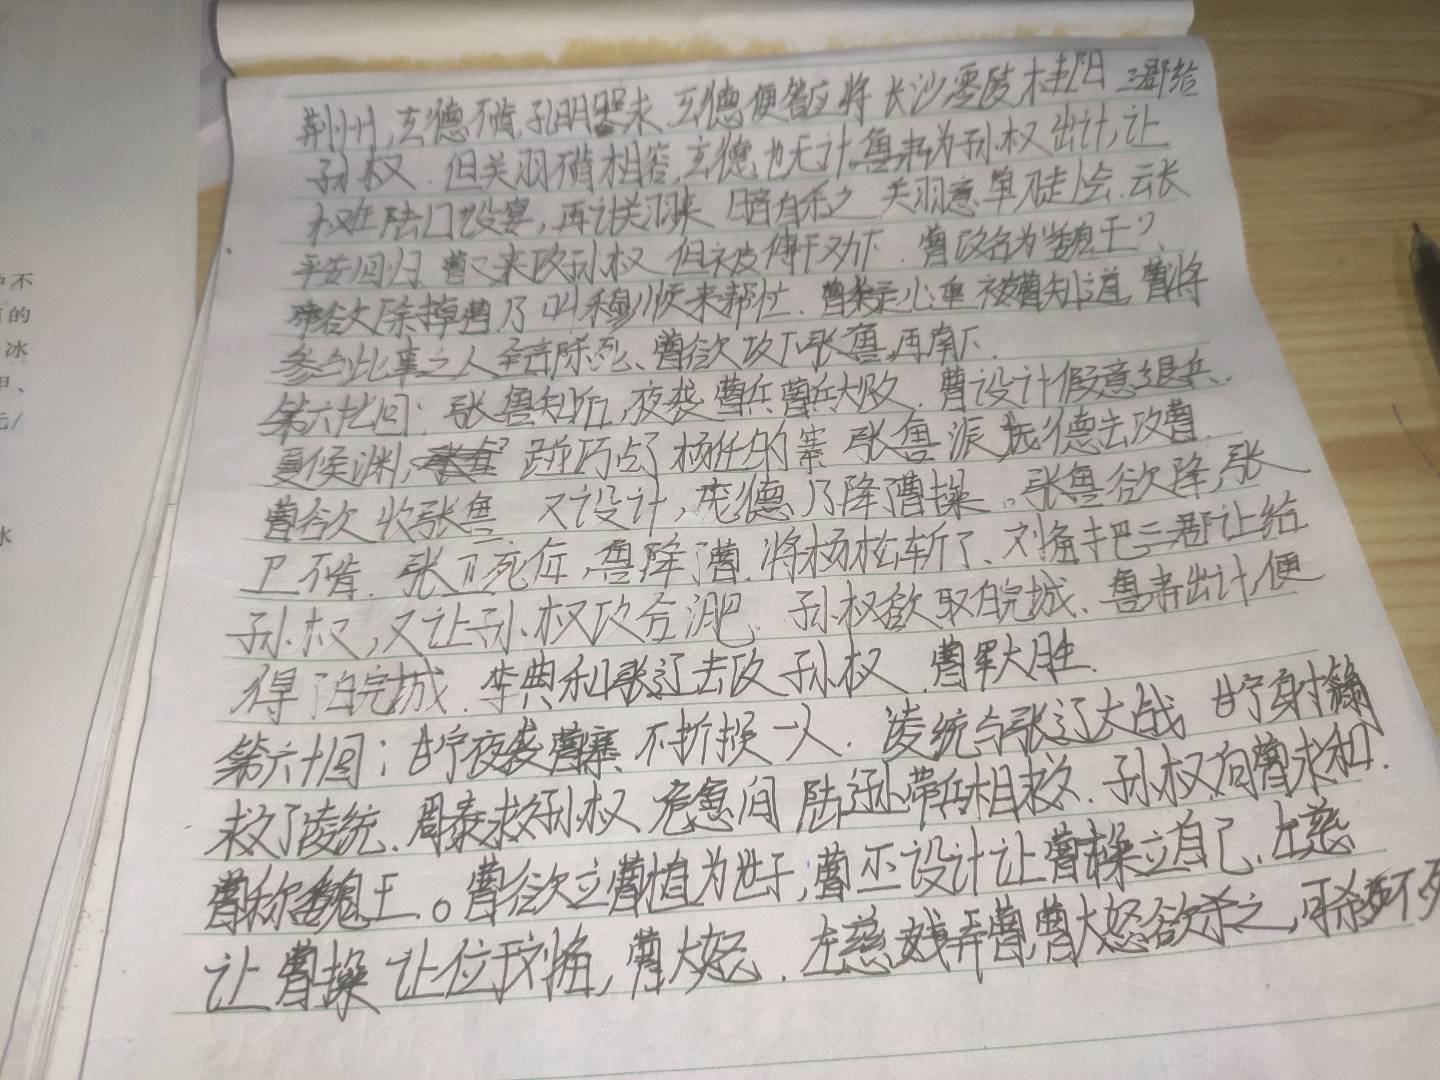 荆州,玄德不肯,孔明哭求,玄德便答应将长沙零陵桂阳三郡给
孙权.但关羽不肯相容,玄德也无计.鲁肃为孙权出计,让
权在陆口设宴,再让关羽来 暗自杀之 关羽意单刀赴会.云长
平安回归.曹又来攻孙权 但被傅干劝下.曹改名为"魏王".
帝欲除掉曹乃叫穆顺来帮忙. 被曹知道 曹将
参与此事之人全部除死、曹欲攻下张鲁,再南下.
第六十七回:张鲁知后,夜袭曹兵曹兵大败.曹设计假意退兵.
夏侯渊, 碰巧占了杨任的寨 张鲁派庞德去攻曹.
曹欲收张鲁.又设计,庞德乃降曹操.张鲁欲降,张
卫不肯.张卫死后,鲁降了曹.将杨松斩了、刘备把三郡让给
孙权,又让孙权攻合淝.孙权欲取皖城、鲁肃出计,便
得了皖城.李典和张辽去攻孙权.曹军大胜.
第六十八回:甘宁夜袭曹寨 不折损一人.凌统与张辽大战 甘宁射箭
救了凌统.周泰救孙权 危急间 陆逊带兵相救.孙权向曹求和.
曹称魏王.。曹欲立曹植为世子,曹丕设计让曹操立自己.左慈
让曹操让位于刘备,曹大怒.左慈戏弄曹,曹大怒欲杀之,可杀死不死
中不
有的
冰
甲、
元/
水